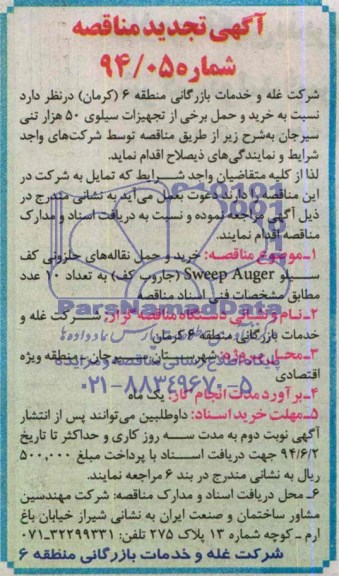 آگهی تجدید مناقصه
شماره ۹۴/۰۵
شرکت غله و خدمات بازرگانی منطقه ۶ (کرمان) درنظر دارد
نسبت به خرید و حمل برخی از تجهیزات سیلوی ۵۰ هزار تنی
سیرجان به‌شرح زیر از طریق مناقصه توسط شرکت‌های واجد
شرایط و نمایندگی‌های ذیصلاح اقدام نماید.
لذا از کلیه متقاضیان واجد شــرایط که تمایل به شرکت در
این مناقصه را دارند دعوت بعمل می‌آید به نشانی مندرج در
ذیل آگهی مراجعه نموده و نسبت به دریافت اسناد و مدارک
مناقصه اقدام نمایند.
۱ـ موضوع مناقصــه: خرید و حمل نقاله‌های حلزونی کف
سـیلو Sweep Auger (جاروب کف) به تعداد ۱۰ عدد
مطابق مشخصات فنی اسناد مناقصه
ParsNamadData
۲ـ نـام و نشـانی دسـتگاه مناقصه گزار: شــرکت غله و
خدمات بازرگانی منطقه ۶ کرمان
۳ـ محـل پـروژه: شهرسـتان سـیرجان ـ منطقه ویژه
پایگاه اطلاع رسانی مناقصه و مزایده
اقتصادی
۰۲۱-۸۸۳۴۹۶۷۰-۵
۴ـ برآورد مدت انجام کار: یک ماه
۵ـ مهلت خرید اسناد: داوطلبین می‌توانند پس از انتشار
آگهی نوبت دوم به مدت ســه روز کاری و حداکثر تا تاریخ
۹۴/۶/۲ جهت دریافت اســناد با پرداخت مبلغ ۵۰۰,۰۰۰
ریال به نشانی مندرج در بند ۶ مراجعه نمایند.
۶ـ محل دریافت اسناد و مدارک مناقصه: شرکت مهندسین
مشاور ساختمان و صنعت ایران به نشانی شیراز خیابان باغ
ارم ـ کوچه شماره ۱۳ پلاک ۲۷۵ تلفن: ۳۲۲۹۹۳۳۱-۰۷۱
شرکت غله و خدمات بازرگانی منطقه ۶